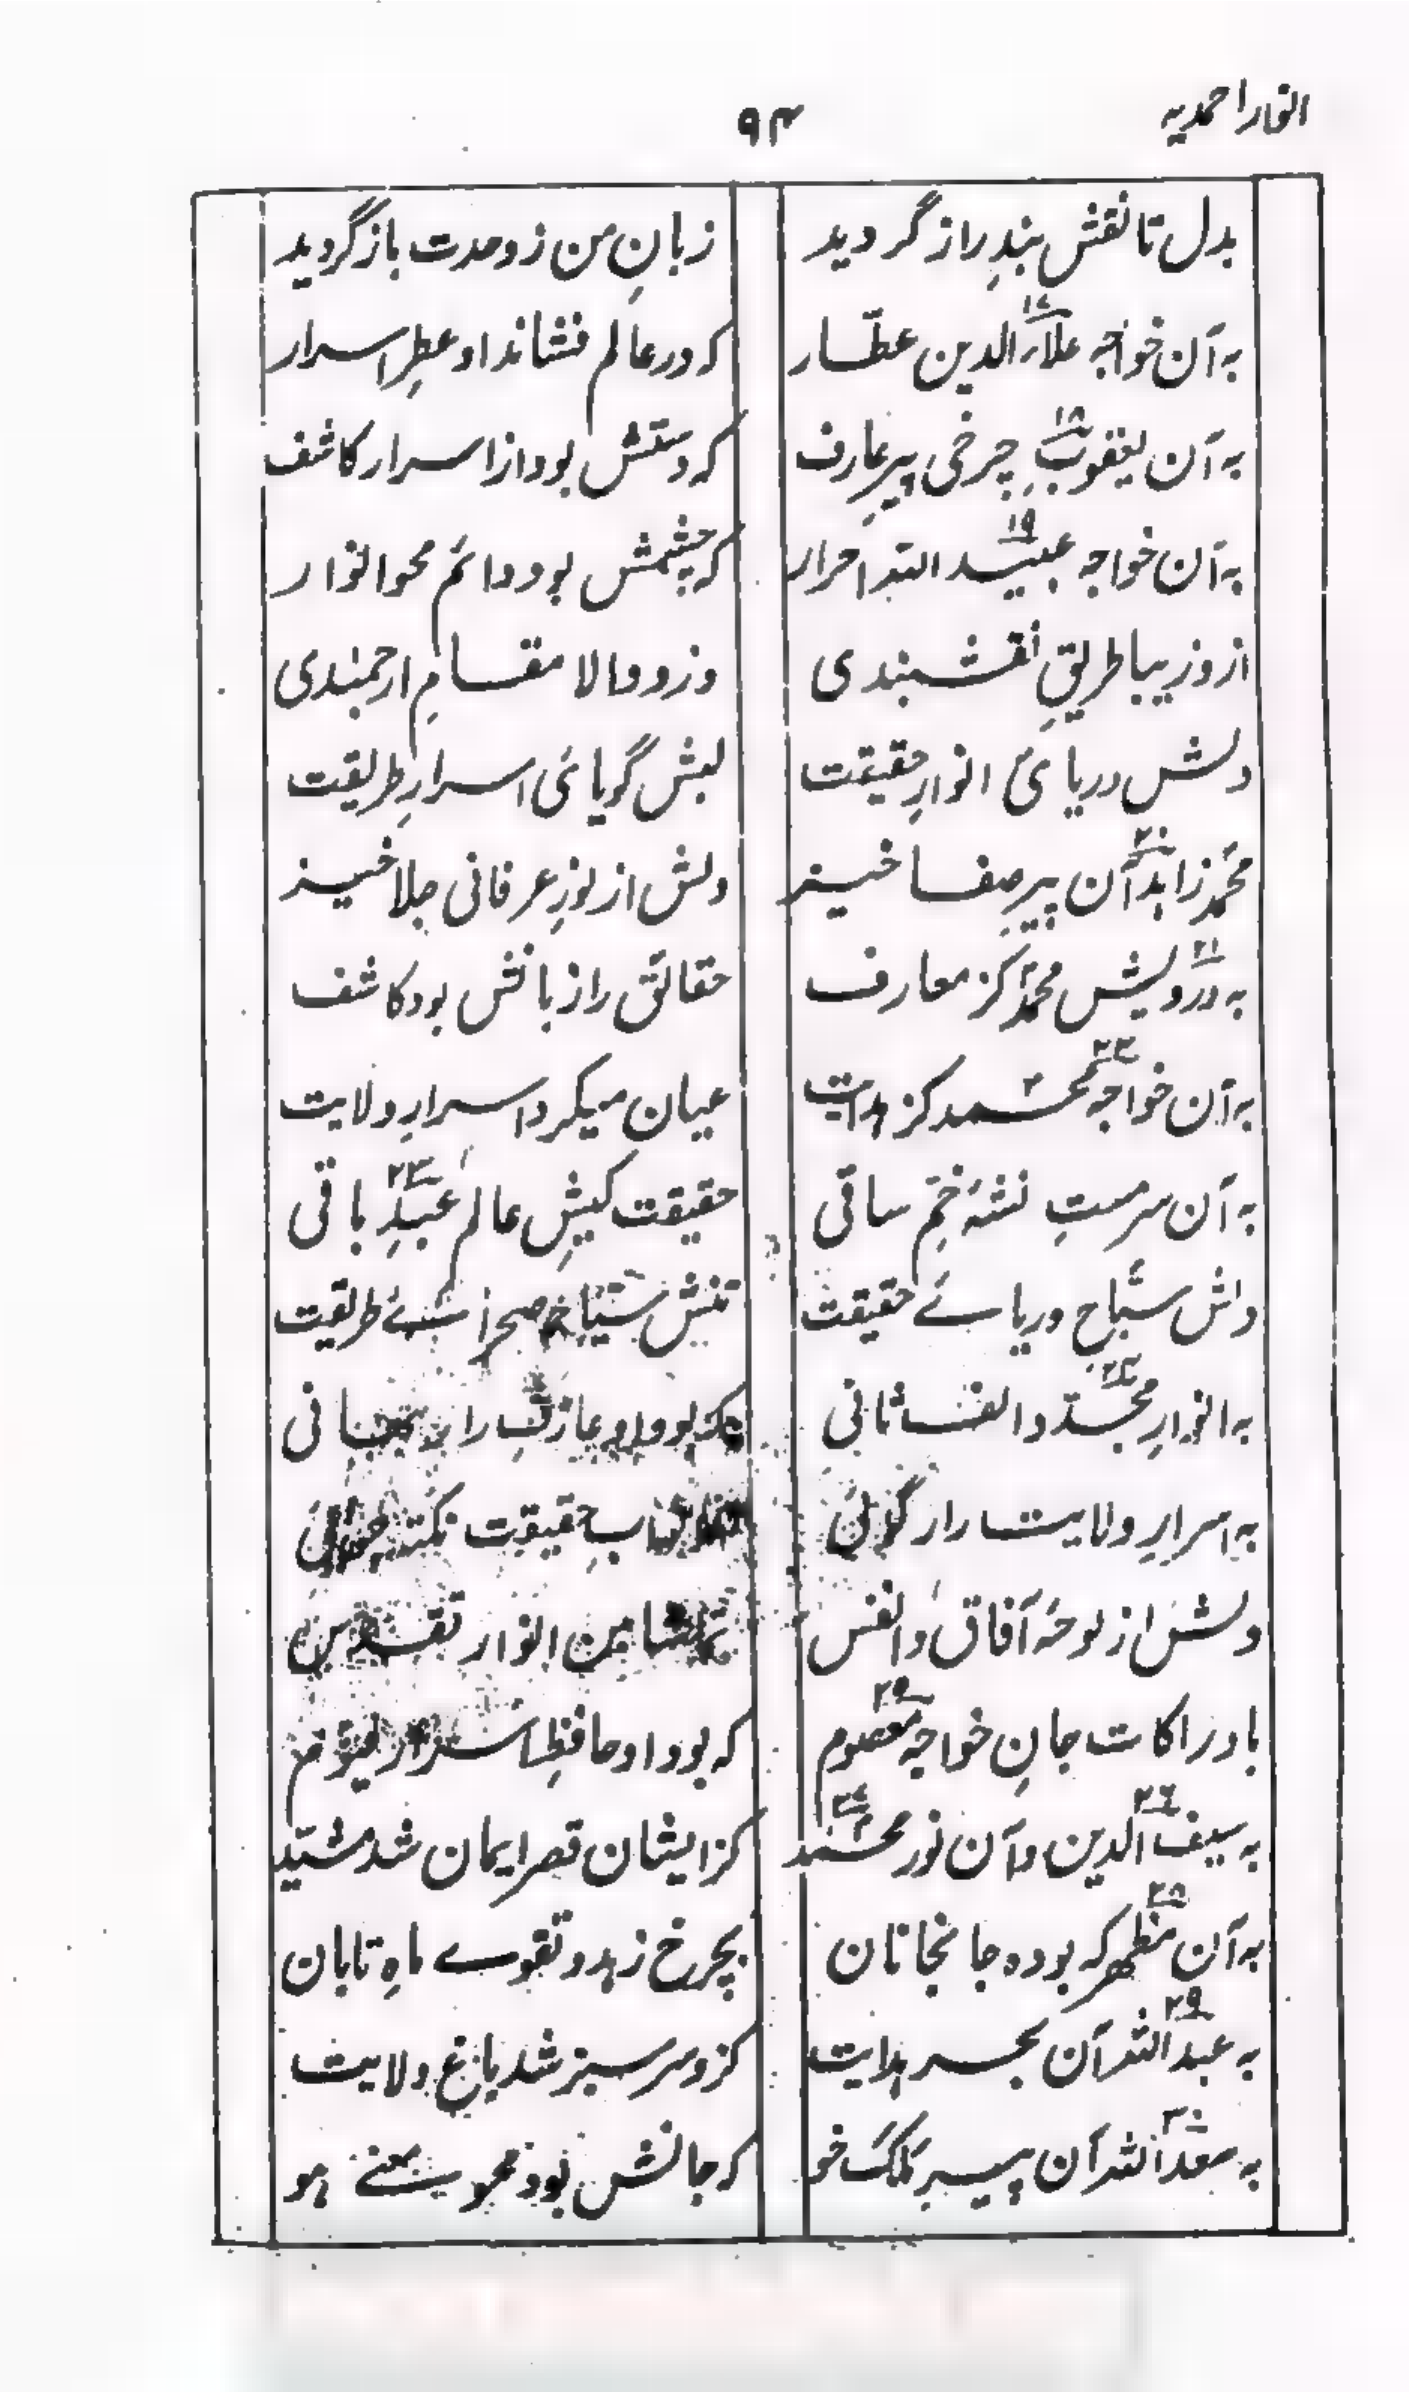 انوار احمدیہ ۹۴
بدل تا نقش بندِ راز گردید زبانِ من ز وحدت باز گردید
بہ آن خواجہ علاؤ الدین عطّار ۱۷ کہ در عالم فشاند او عطرِ اسرار
بہ آن یعقوبِ چرخی پیرِ عارف ۱۸ کہ دستش بود از اسرار کاشف
بہ آن خواجہ عبید اللہ احرار ۱۹ کہ چشمش بود دائم محو انوار
ازو زیبا طریقِ نقشبندی وزو والا مقامِ ارجمندی
دلش دریائ انوارِ حقیقت لبش گویائ اسرارِ طریقت
محمد زاہد آن پیرِ صفا خیز ۲۰ دلش از نورِ عرفانی جلا خیز
بہ درویش محمد کز معارف ۲۱ حقائق را زبانش بود کاشف
بہ آن خواجہ محمد کز ہدایت ۲۲ عیان میکرد اسرارِ ولایت
بہ آن سرمستِ نشۂ خُمِ ساقی حقیقت کیشِ عالم عبدِ باقی ۲۳
دلش سبّاحِ دریاے حقیقت تنش سیّاحِ صحراے طریقت
بہ انوارِ مجدّد الف ثانی ۲۴ کہ بود او عارفِ راز
بہ اسرارِ ولایت راز گوئ حقیقت نکتہ
دلش از لوحۂ آفاق و انفس تماشا بین انوار تقدس
با دراکات جانِ خواجہ معصوم ۲۵ کہ بود او حافظِ اسرار قیّوم
بہ سیف الدین و آن نور محمد ۲۶ ۲۷ کز ایشان قصر ایمان شد مشیّد
بہ آن مظہر کہ بودہ جانجانان ۲۸ بچرخ زہد و تقوے ماہِ تابان
بہ عبد اللہ آن بحر ہدایت ۲۹ کزو سرسبز شد باغِ ولایت
بہ سعد اللہ آن پیرِ مَلَک خو ۳۰ کہ جانش بود محو معنے ہو